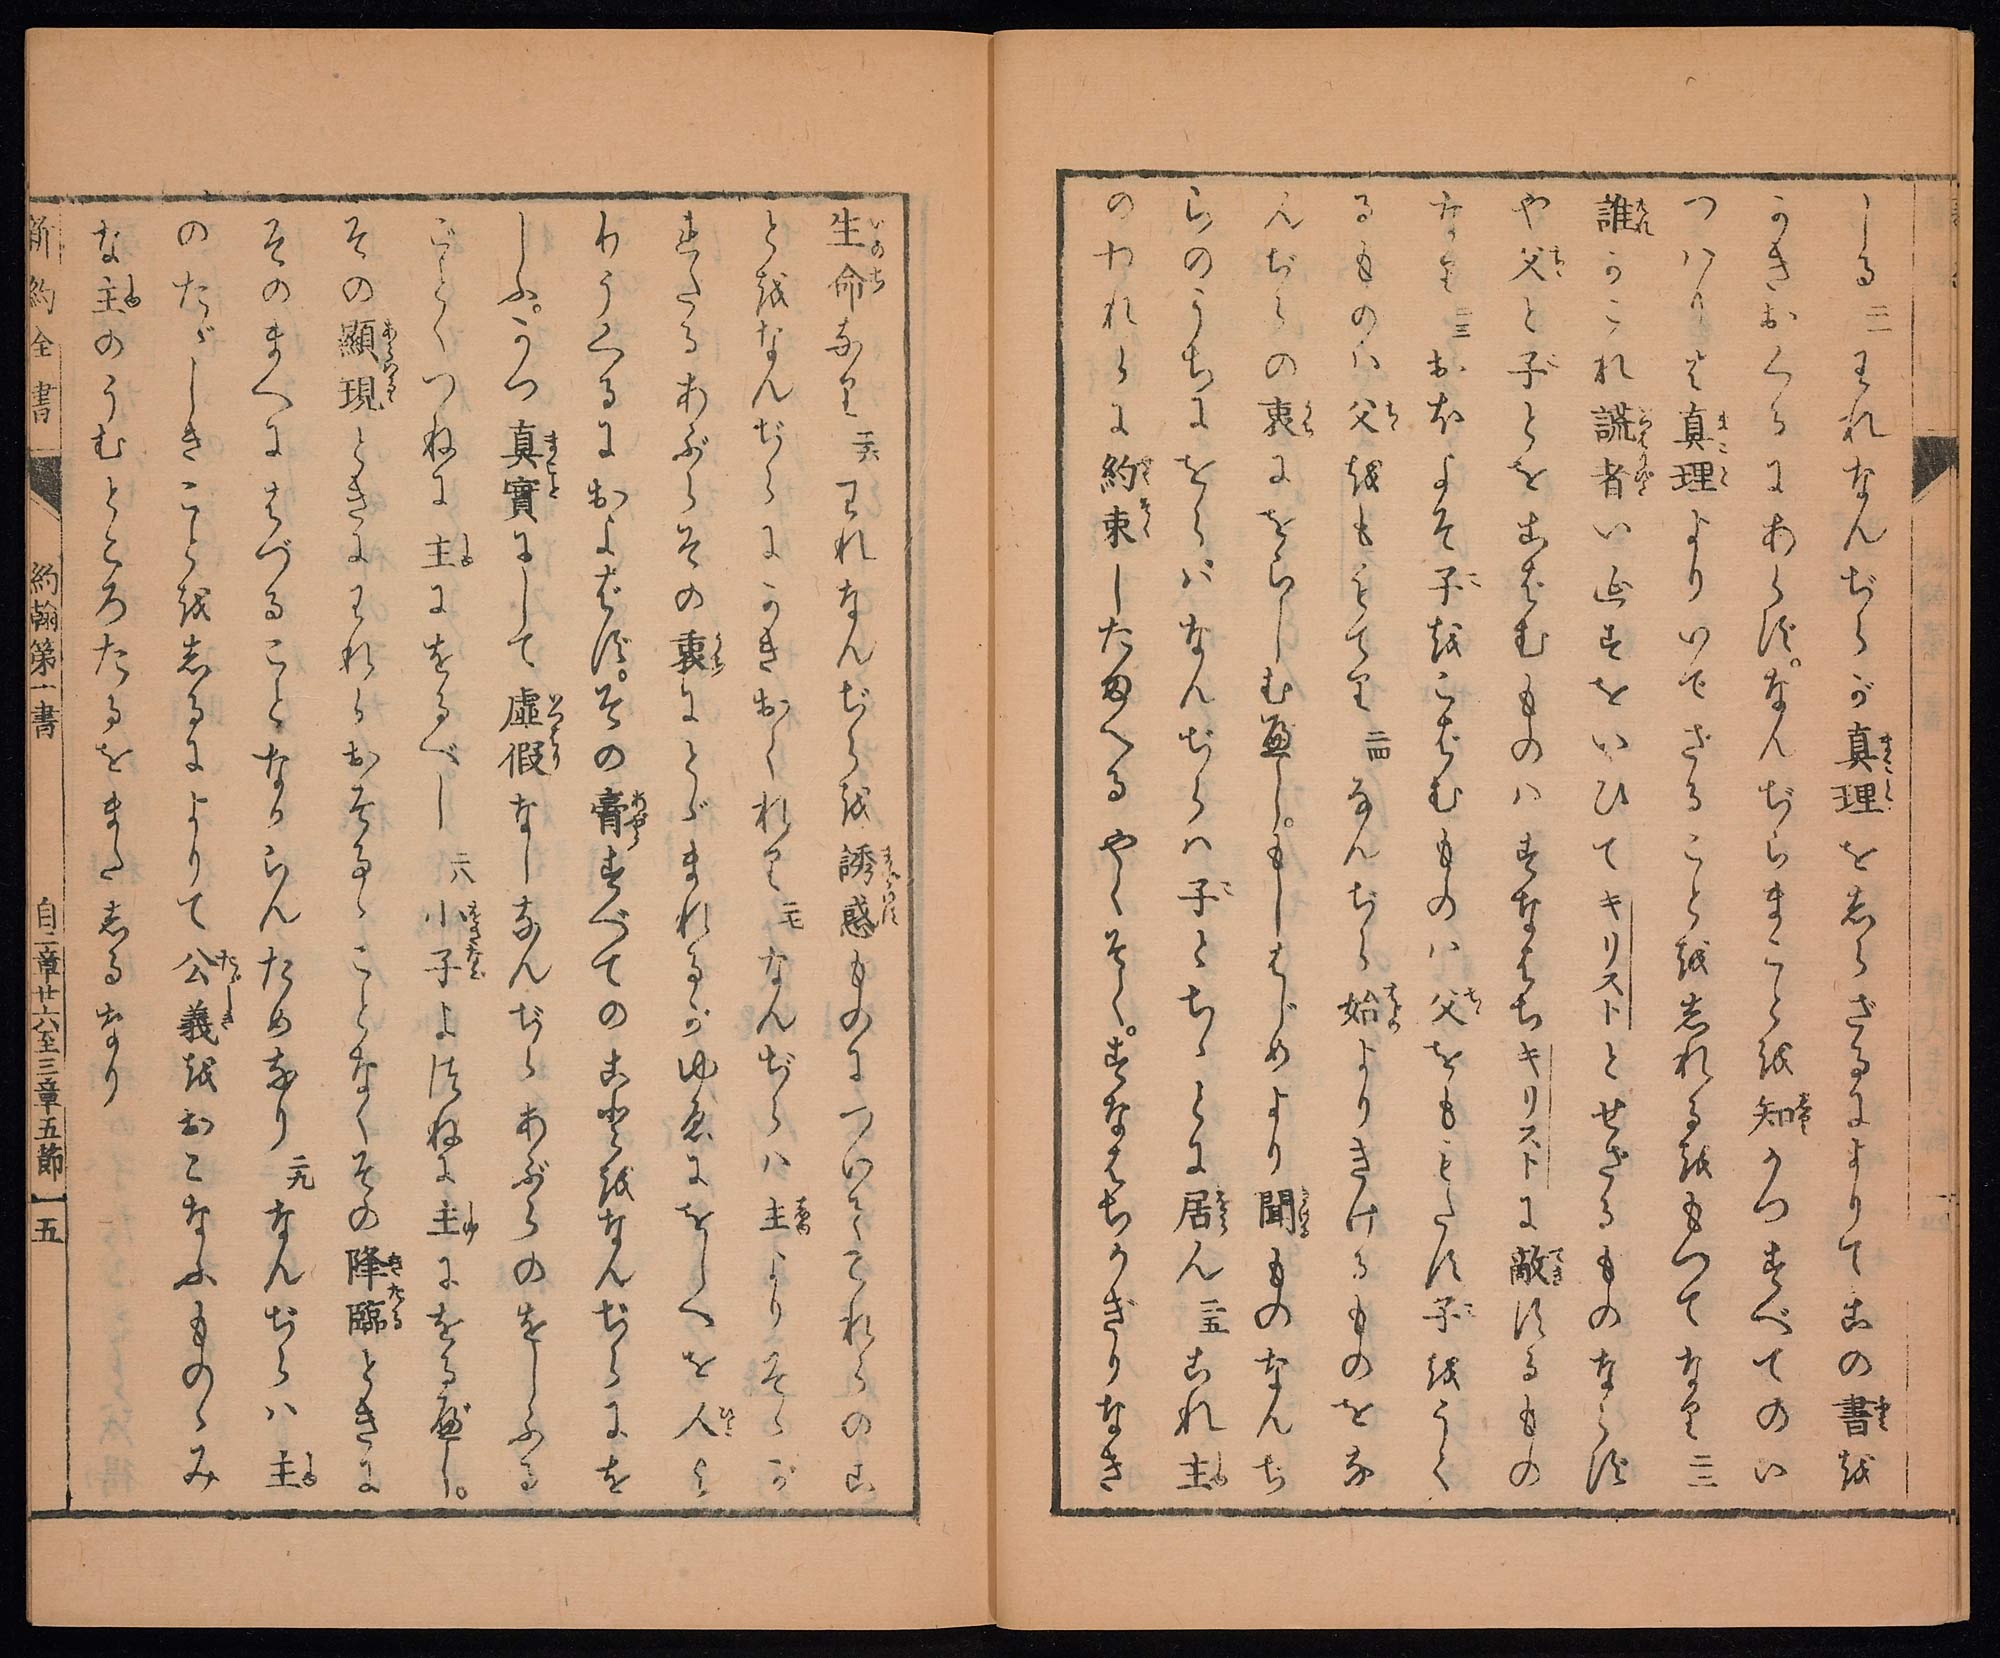 しる 二一 われなんぢらが真理をしらざるによりてこの書を
かきおくるにあらず。なんぢらまことを知かつすべてのい
つハりは真理よりいでざることをしれるをもつてなり 二二
誰かこれ謊者いゑすをいひてキリストとせざるものならず
や父と子とをこばむものハすなはちキリストに敵するもの
なり 二三 おほよそ子をこばむものハ父をももたず子をうく
るものハ父をももてり 二四 なんぢら始よりきけるものをな
んぢらの衷にをらしむべし。もしはじめより聞ものなんぢ
らのうちにをらバなんぢらハ子とちゝとに居ん 二五 これ主
のわれらに約束したまへるやくそく。すなはちかぎりなき
生命なり 二六 われなんぢらを誘惑ものについてこれらのこ
とをなんぢらにかきおくれり 二七 なんぢらハ主よりそゝが
れたるあぶらその衷にとゞまれるがゆゑにをしへを人よ
りうくるにおよばず。その膏すべてのことをなんぢらにを
しふ。かつ真實にして虚假なしなんぢらあぶらのをしふる
ごとくつねに主にをるべし 二八 小子よつねに主にをるべし。
その顯現ときにわれらおそるゝことなくその降臨ときに
そのまへにはづることなからんためなり 二九 なんぢらハ主
のたゞしきことをしるによりて公義をおこなふものゝみ
な主のうむところたるをまたしるなり
新約全書 約翰第一書 自二章廿六至三章五節 五